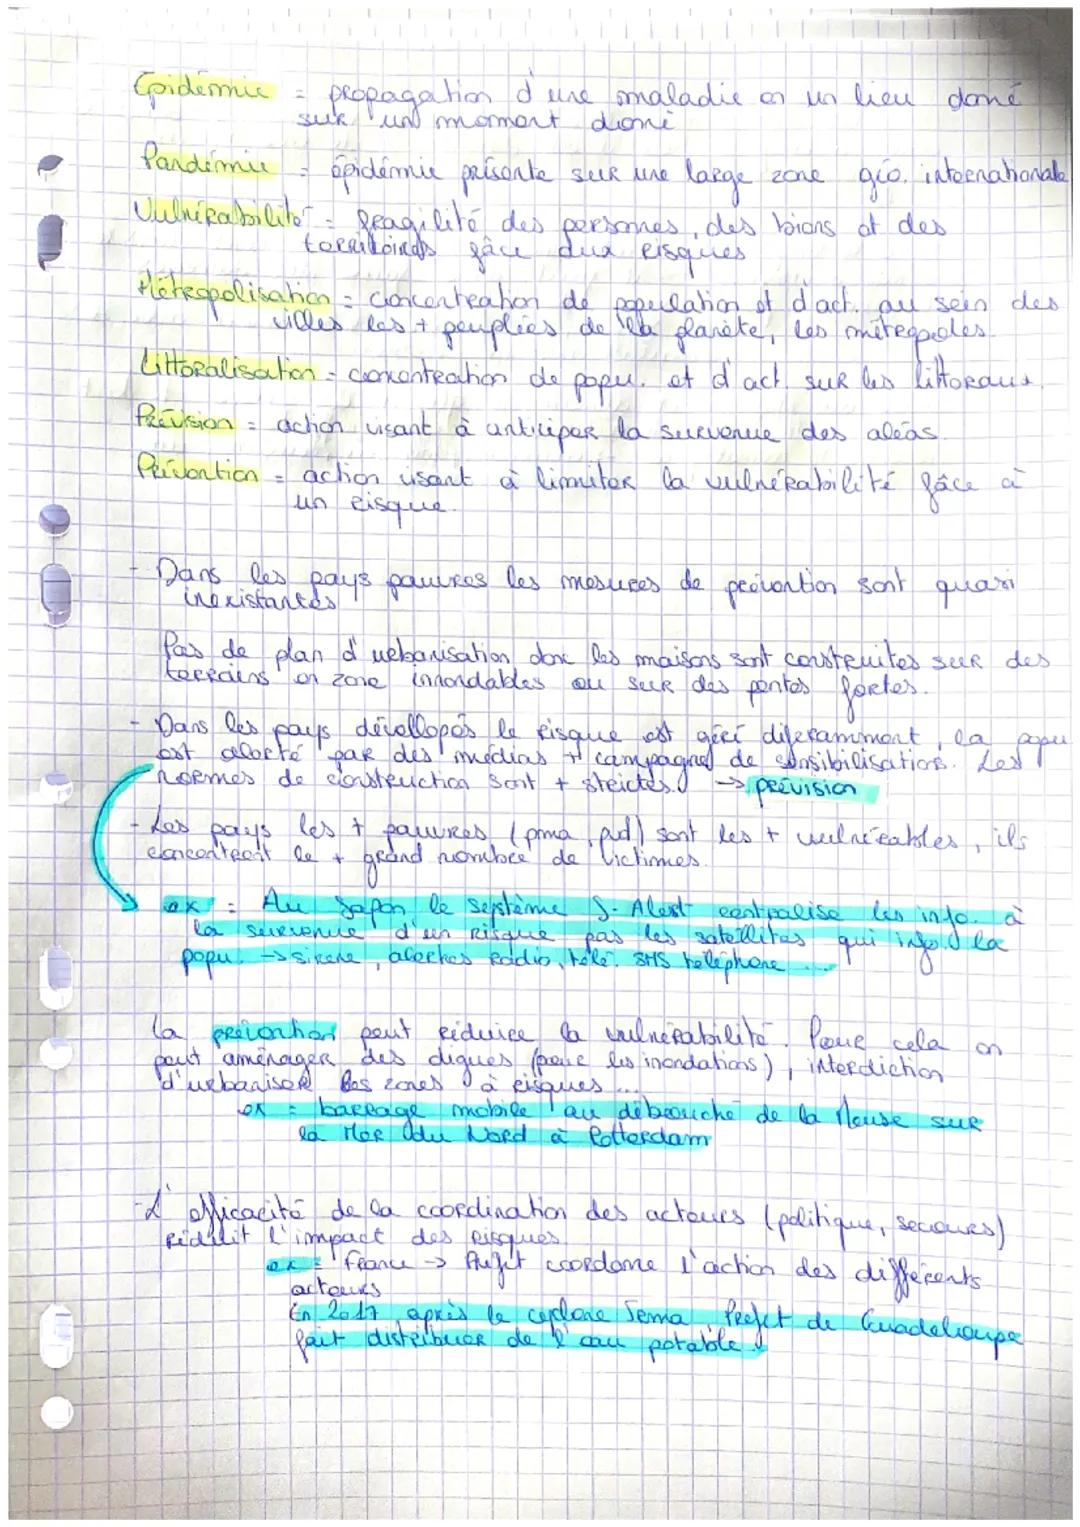 Epidémie = propagation d'une maladie en un lieu doné
sur un moment donné
Pandémie = épidémie présente sur une large zone géo. internationale
Vulnérabilité = fragilité des personnes, des biens et des
territoires fâce aux risques
Métropolisation = concentration de population et d'act. au sein des
villes les + peuplées de la planète, les métropoles.
Littoralisation = concentration de popu. et d'act. sur les littoraux.
Prévision = action visant à anticiper la survenue des aléas.
Prévention = action visant à limiter la vulnérabilité fâce à
un risque.
- Dans les pays pauvres les mesures de prévention sont quasi
inexistantes
Pas de plan d'urbanisation donc les maisons sont construites sur des
terrains en zone innondables ou sur des pentes fortes.
- Dans les pays dévellopés le risque est géré diferamment, la popu
est alerté par des médias + campagne de sensibilisation. Les
normes de construction sont + strictes. → prévision
- Les pays les + pauvres (pma, pvd) sont les + vulnérables, ils
concentrent le + grand nombre de victimes.
ex : Au Japon le système J-Alert centralise les info. à
la survenue d'un risque pas les satellites qui info. la
popu. → sirene, alertes radio, télé. SMS téléphone ...
La prévention peut réduire la vulnérabilité. Pour cela on
peut aménager des digues (pour les inondations), interdiction
d'urbaniser les zones à risques ...
ex : barrage mobile au débouché de la Meuse sur
la Mer du Nord à Rotterdam
- L'efficacité de la coordination des acteurs (politique, secours)
réduit l'impact des risques
ex : France → Préfet coordone l'action des différents
acteurs
En 2017 après le cyclone Irma, Préfet de Guadeloupe
fait distribuer de l'eau potable.